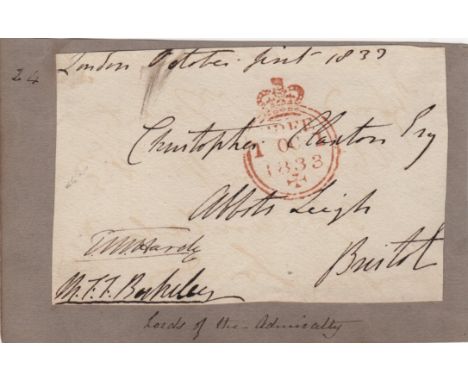 24
London October first 1833
FREE
1 OC
1833
Christopher Claxton Esq
Abbots Leigh
Bristol
T M Hardy
M. F. F. Berkeley
Lords of the Admiralty